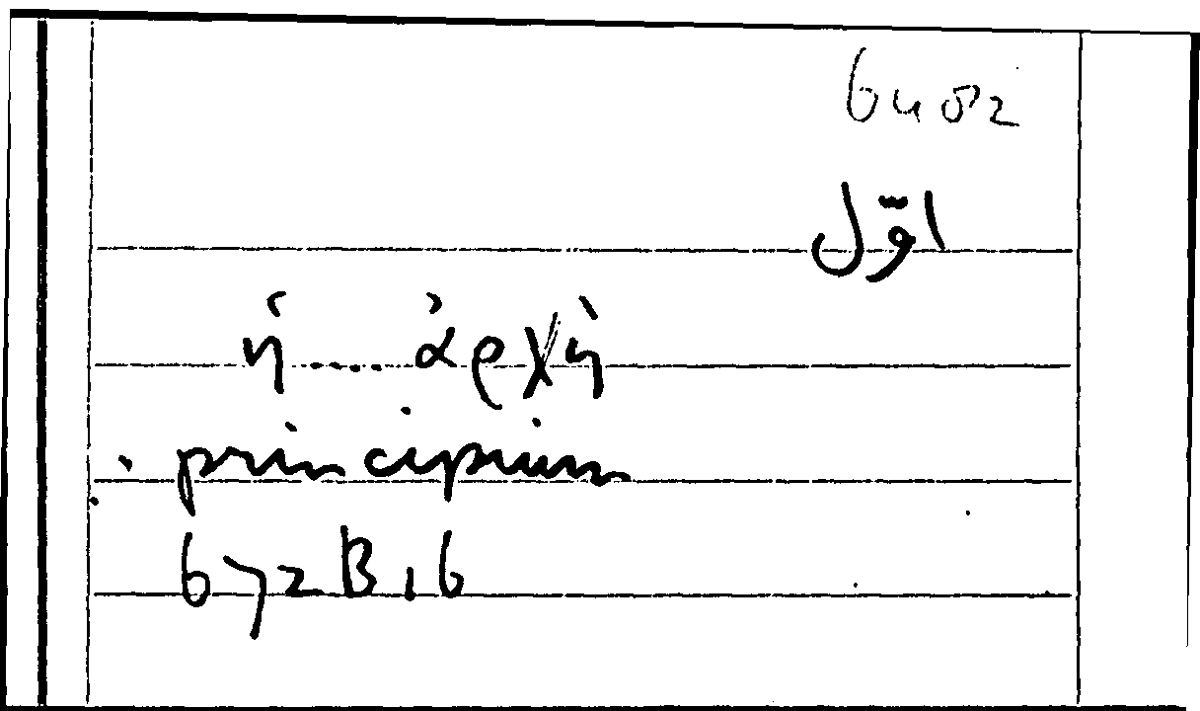 6402
اوّل
ἡ .... ἀρχὴ
principium
672 B 16